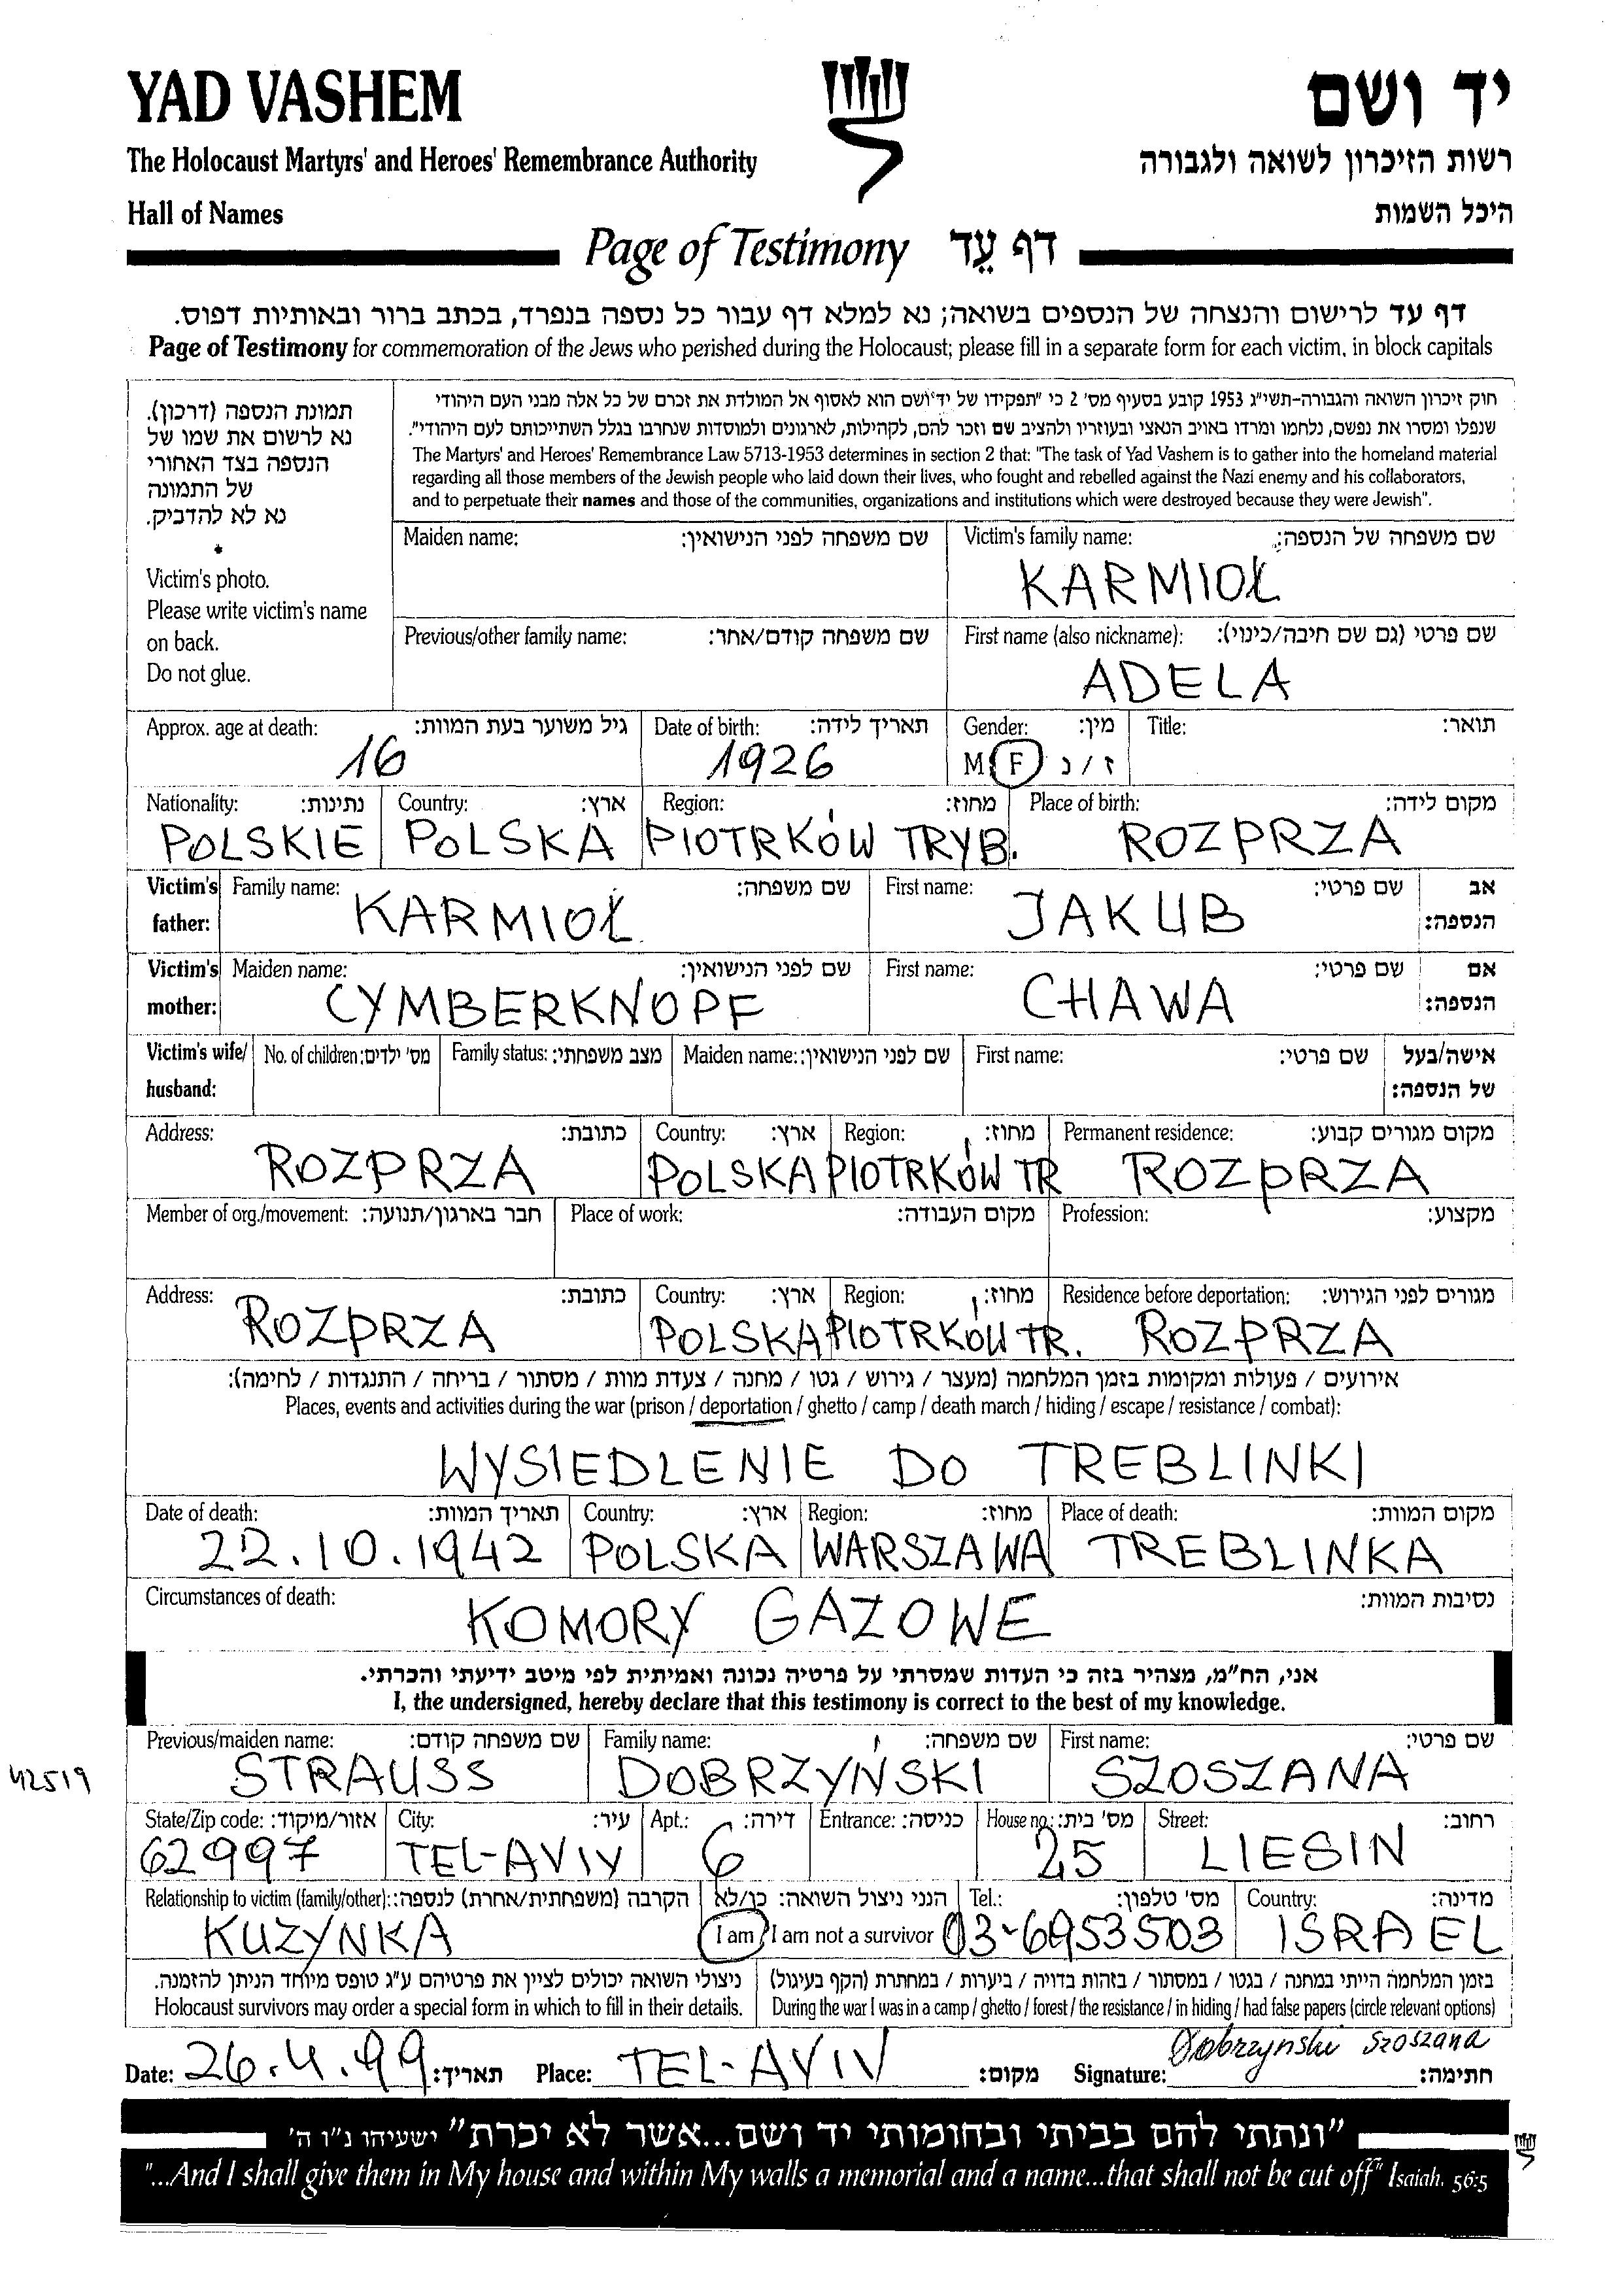 YAD VASHEM
יד ושם
The Holocaust Martyrs' and Heroes' Remembrance Authority
רשות הזיכרון לשואה ולגבורה
Hall of Names
היכל השמות
Page of Testimony דף עֵד
דף עד לרישום והנצחה של הנספים בשואה; נא למלא דף עבור כל נספה בנפרד, בכתב ברור ובאותיות דפוס.
Page of Testimony for commemoration of the Jews who perished during the Holocaust; please fill in a separate form for each victim, in block capitals
תמונת הנספה (דרכון).
נא לרשום את שמו של
הנספה בצד האחורי
של התמונה
נא לא להדביק.
*
Victim's photo.
Please write victim's name
on back.
Do not glue.
חוק זיכרון השואה והגבורה-תשי"ג 1953 קובע בסעיף מס' 2 כי "תפקידו של יד ושם הוא לאסוף אל המולדת את זכרם של כל אלה מבני העם היהודי
שנפלו ומסרו את נפשם, נלחמו ומרדו באויב הנאצי ובעוזריו ולהציב שם וזכר להם, לקהילות, לארגונים ולמוסדות שנחרבו בגלל השתייכותם לעם היהודי".
The Martyrs' and Heroes' Remembrance Law 5713-1953 determines in section 2 that: "The task of Yad Vashem is to gather into the homeland material
regarding all those members of the Jewish people who laid down their lives, who fought and rebelled against the Nazi enemy and his collaborators,
and to perpetuate their names and those of the communities, organizations and institutions which were destroyed because they were Jewish".
Maiden name: שם משפחה לפני הנישואין:
Victim's family name: שם משפחה של הנספה:
KARMIOŁ
Previous/other family name: שם משפחה קודם/אחר:
First name (also nickname): שם פרטי (גם שם חיבה/כינוי):
ADELA
Approx. age at death: גיל משוער בעת המוות: Date of birth: תאריך לידה: Gender: מין: Title: תואר:
16 1926 M F ז / נ
Nationality: נתינות: Country: ארץ: Region: מחוז: Place of birth: מקום לידה:
POLSKIE POLSKA PIOTRKÓW TRYB. ROZPRZA
Victim's father: Family name: שם משפחה: First name: שם פרטי: אב הנספה:
KARMIOŁ JAKUB
Victim's mother: Maiden name: שם לפני הנישואין: First name: שם פרטי: אם הנספה:
CYMBERKNOPF CHAWA
Victim's wife/ husband: No. of children: מס' ילדים: Family status: מצב משפחתי: Maiden name: שם לפני הנישואין: First name: שם פרטי: אישה/בעל של הנספה:
Address: כתובת: Country: ארץ: Region: מחוז: Permanent residence: מקום מגורים קבוע:
ROZPRZA POLSKA PIOTRKÓW TR ROZPRZA
Member of org./movement: חבר בארגון/תנועה: Place of work: מקום העבודה: Profession: מקצוע:
Address: כתובת: Country: ארץ: Region: מחוז: Residence before deportation: מגורים לפני הגירוש:
ROZPRZA POLSKA PIOTRKÓW TR. ROZPRZA
אירועים / פעולות ומקומות בזמן המלחמה (מעצר / גירוש / גטו / מחנה / צעדת מוות / מסתור / בריחה / התנגדות / לחימה):
Places, events and activities during the war (prison / deportation / ghetto / camp / death march / hiding / escape / resistance / combat):
WYSIEDLENIE DO TREBLINKI
Date of death: תאריך המוות: Country: ארץ: Region: מחוז: Place of death: מקום המוות:
22.10.1942 POLSKA WARSZAWA TREBLINKA
Circumstances of death: נסיבות המוות:
KOMORY GAZOWE
אני, הח"מ, מצהיר בזה כי העדות שמסרתי על פרטיה נכונה ואמיתית לפי מיטב ידיעתי והכרתי.
I, the undersigned, hereby declare that this testimony is correct to the best of my knowledge.
Previous/maiden name: שם משפחה קודם: Family name: שם משפחה: First name: שם פרטי:
42519 STRAUSS DOBRZYŃSKI SZOSZANA
State/Zip code: אזור/מיקוד: City: עיר: Apt.: דירה: Entrance: כניסה: House no.: מס' בית: Street: רחוב:
62997 TEL-AVIV 6 25 LIESIN
Relationship to victim (family/other): הקרבה (משפחתית/אחרת) לנספה: הנני ניצול השואה: כן/לא Tel.: מס' טלפון: Country: מדינה:
KUZYNKA I am / I am not a survivor 03-6953503 ISRAEL
ניצולי השואה יכולים לציין את פרטיהם ע"ג טופס מיוחד הניתן להזמנה.
בזמן המלחמה הייתי במחנה / בגטו / במסתור / בזהות בדויה / ביערות / במחתרת (הקף בעיגול)
Holocaust survivors may order a special form in which to fill in their details.
During the war I was in a camp / ghetto / forest / the resistance / in hiding / had false papers (circle relevant options)
Date: 26.4.99 תאריך: Place: TEL-AVIV מקום: Signature: Dobrzynski Szoszana חתימה:
"ונתתי להם בביתי ובחומותי יד ושם...אשר לא יכרת" ישעיהו נ"ו ה'
"...And I shall give them in My house and within My walls a memorial and a name...that shall not be cut off" Isaiah, 56:5